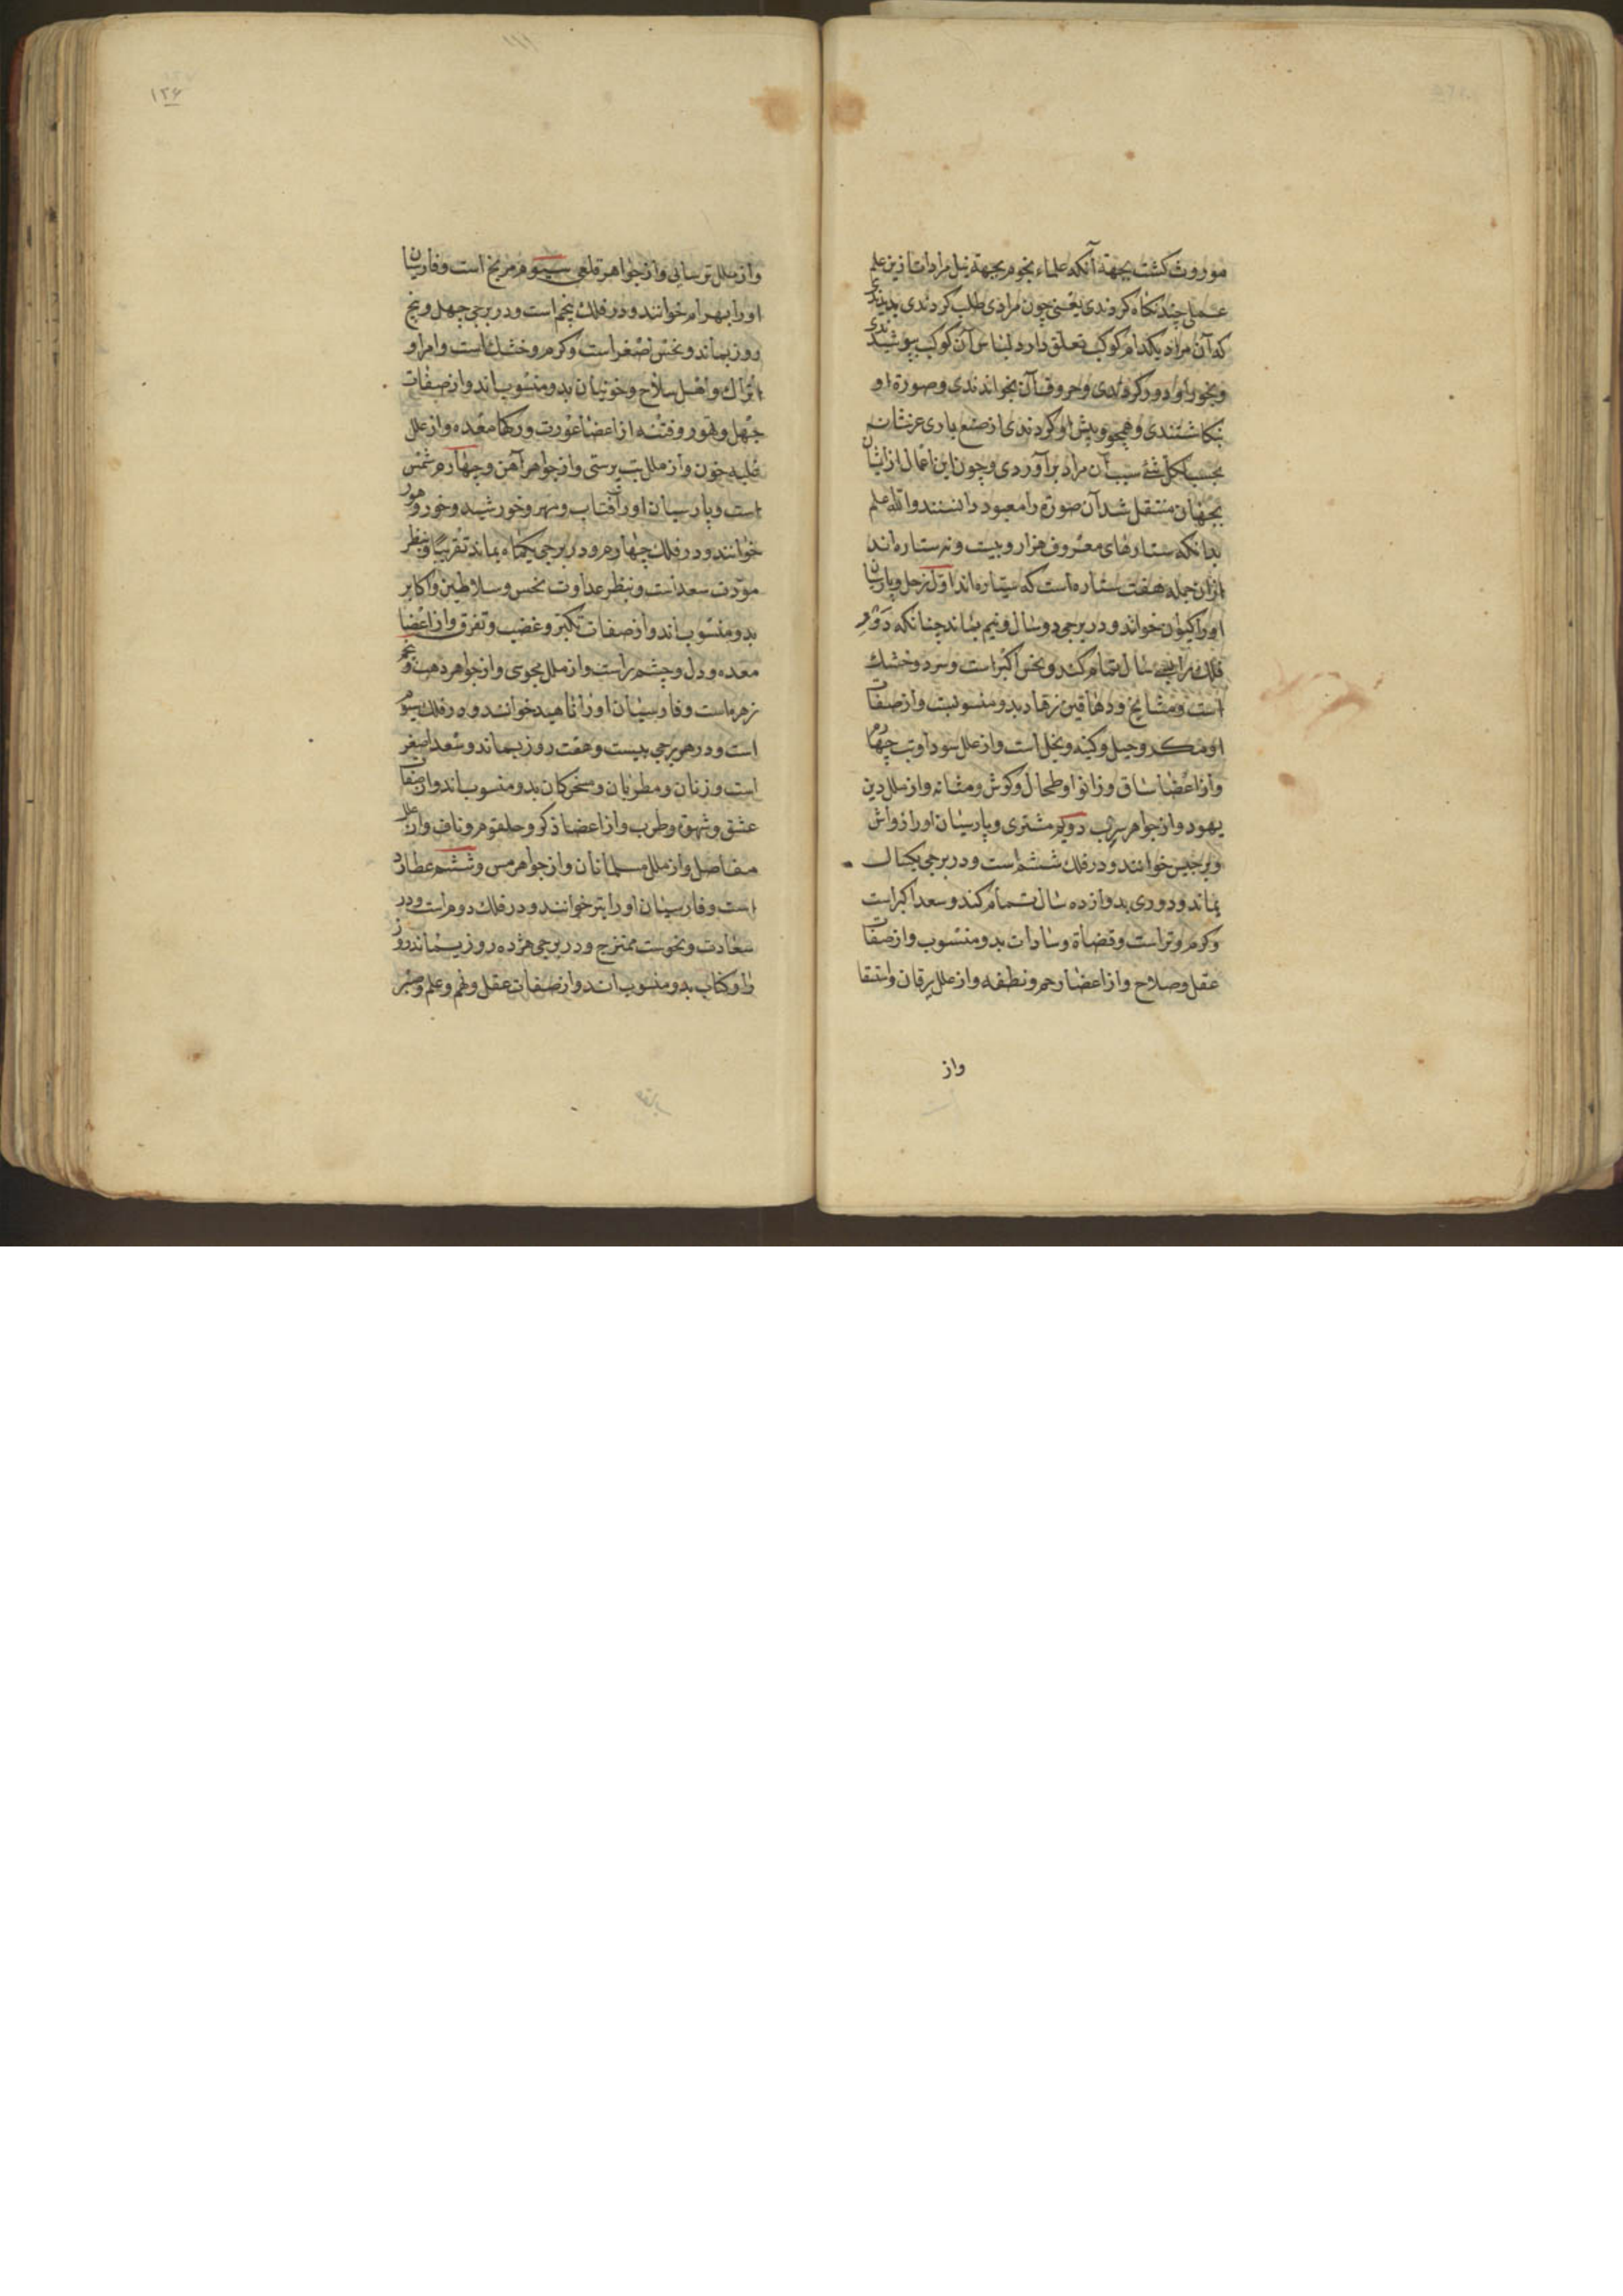 موروث کشت بجهة آنکه علماء نجوم بجهة نیل مرادات ازین علم
عملی چند نکاه کردندی یعنی چون مرادی طلب کردندی بدیدندی
که آن مراد بکدام کوکب تعلق دارد لباس آن کوکب پوشیدندی
وبخور او دور کردندی وحروف آن بخواندندی وصورة او
بنکاشتندی وهمجو وپیش او کردندی از صنع باری عزشانه
بحسب لکل شئ سبب آن مراد برآوردی وچون این اعمال ازایشان
بجهان منتقل شد آن صورة را معبود دانستند والله اعلم
بدانکه ستارهای معروف هزار وبیست ونه ستاره اند
ازان جمله هفت ستاره است که سیاره اند اول زحل وپارسیان
اورا کیوان خوانند ودر برجی دوسال ونیم بماند چنانکه دور
فلک را بسی سال تمام کند ونحس اکبر است وسرد وخشک
است ومشایخ ودهاقین وزهاد بدو منسوبست وازصفات
او مکر وحیل وکینه وبخل است واز علل سودا وتب چهارم
واز اعضا ساق وزانو وطحال وکوش ومثانه واز ملل دین
یهود واز جواهر سرب دویم مشتری وپارسیان اورا زواش
وبرجیس خوانند ودر فلک ششم است ودر برجی یکسال
بماند ودوری بدوازده سال تمام کند وسعد اکبر است
وکرم وتراست وقضاة وسادات بدو منسوب واز صفات
عقل وصلاح واز اعضا رحم ونطفه واز علل یرقان واستسقا
واز
۱۲۶
واز ملل ترسایی واز جواهر قلعی سیوم مریخ است وفارسیان
اورا بهرام خوانند ودر فلک پنجم است ودر برجی چهل وپنج
روز بماند ونحس اصغر است وکرم وخشک است وامرا و
اتراک واهل سلاح وخونیان بدو منسوب اند واز صفات
جهل وتهور وفتنه از اعضا عورت ورکها معده واز علل
غلبه خون واز ملل بت پرستی واز جواهر آهن وچهارم شمس
است وپارسیان اورا آفتاب ومهر وخورشید وخور وهور
خوانند ودر فلک چهارم ودر برجی یکماه بماند تقریبا وبنظر
مودت سعد است وبنظر عداوت نحس وسلاطین واکابر
بدو منسوب اند واز صفات تکبر وغضب وتفرق واز اعضا
معده ودل وچشم راست واز ملل مجوسی واز جواهر ذهب وپنجم
زهره است وفارسیان اورا ناهید خوانند ودر فلک سیوم
است ودر هر برجی بیست وهفت روز بماند وسعد اصغر
است وزنان ومطربان ومسخرکان بدو منسوب اند واز صفات
عشق وشهوة وطرب واز اعضا ذکر وحلقوم وناف واز علل
مفاصل واز ملل مسلمانان واز جواهر مس وششم عطارد
است وفارسیان اورا تیر خوانند ودر فلک دوم است ودر
سعادت ونحوست ممتزج ودر برجی هژده روز بماند روز
را وکتاب بدو منسوب اند واز صفات عقل وفهم وعلم وصبر